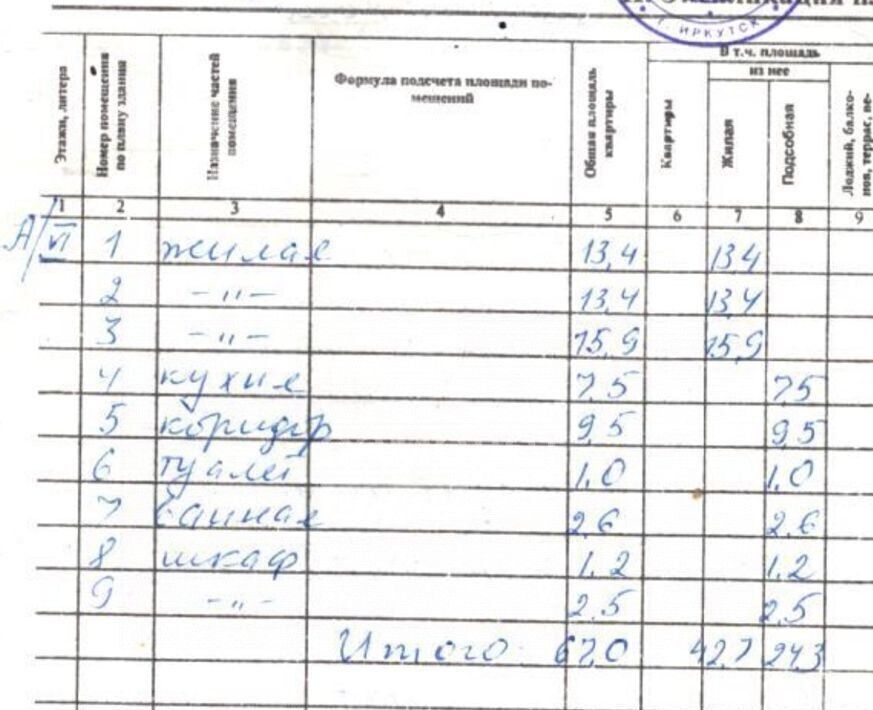 г. ИРКУТСК
Этажи, литера
Номер помещения по плану здания
Назначение частей помещения
Формула подсчета площади по-
мещений
Общая площадь квартиры
В т.ч. площадь
из нее
Квартиры
Жилая
Подсобная
Лоджий, балко-
нов, террас, ве-
1 2 3 4 5 6 7 8 9
А/VI 1 жилая 13,4 13,4
2 -"- 13,4 13,4
3 -"- 15,9 15,9
4 кухня 7,5 7,5
5 коридор 9,5 9,5
6 туалет 1,0 1,0
7 ванная 2,6 2,6
8 шкаф 1,2 1,2
9 -"- 2,5 2,5
Итого 67,0 42,7 24,3